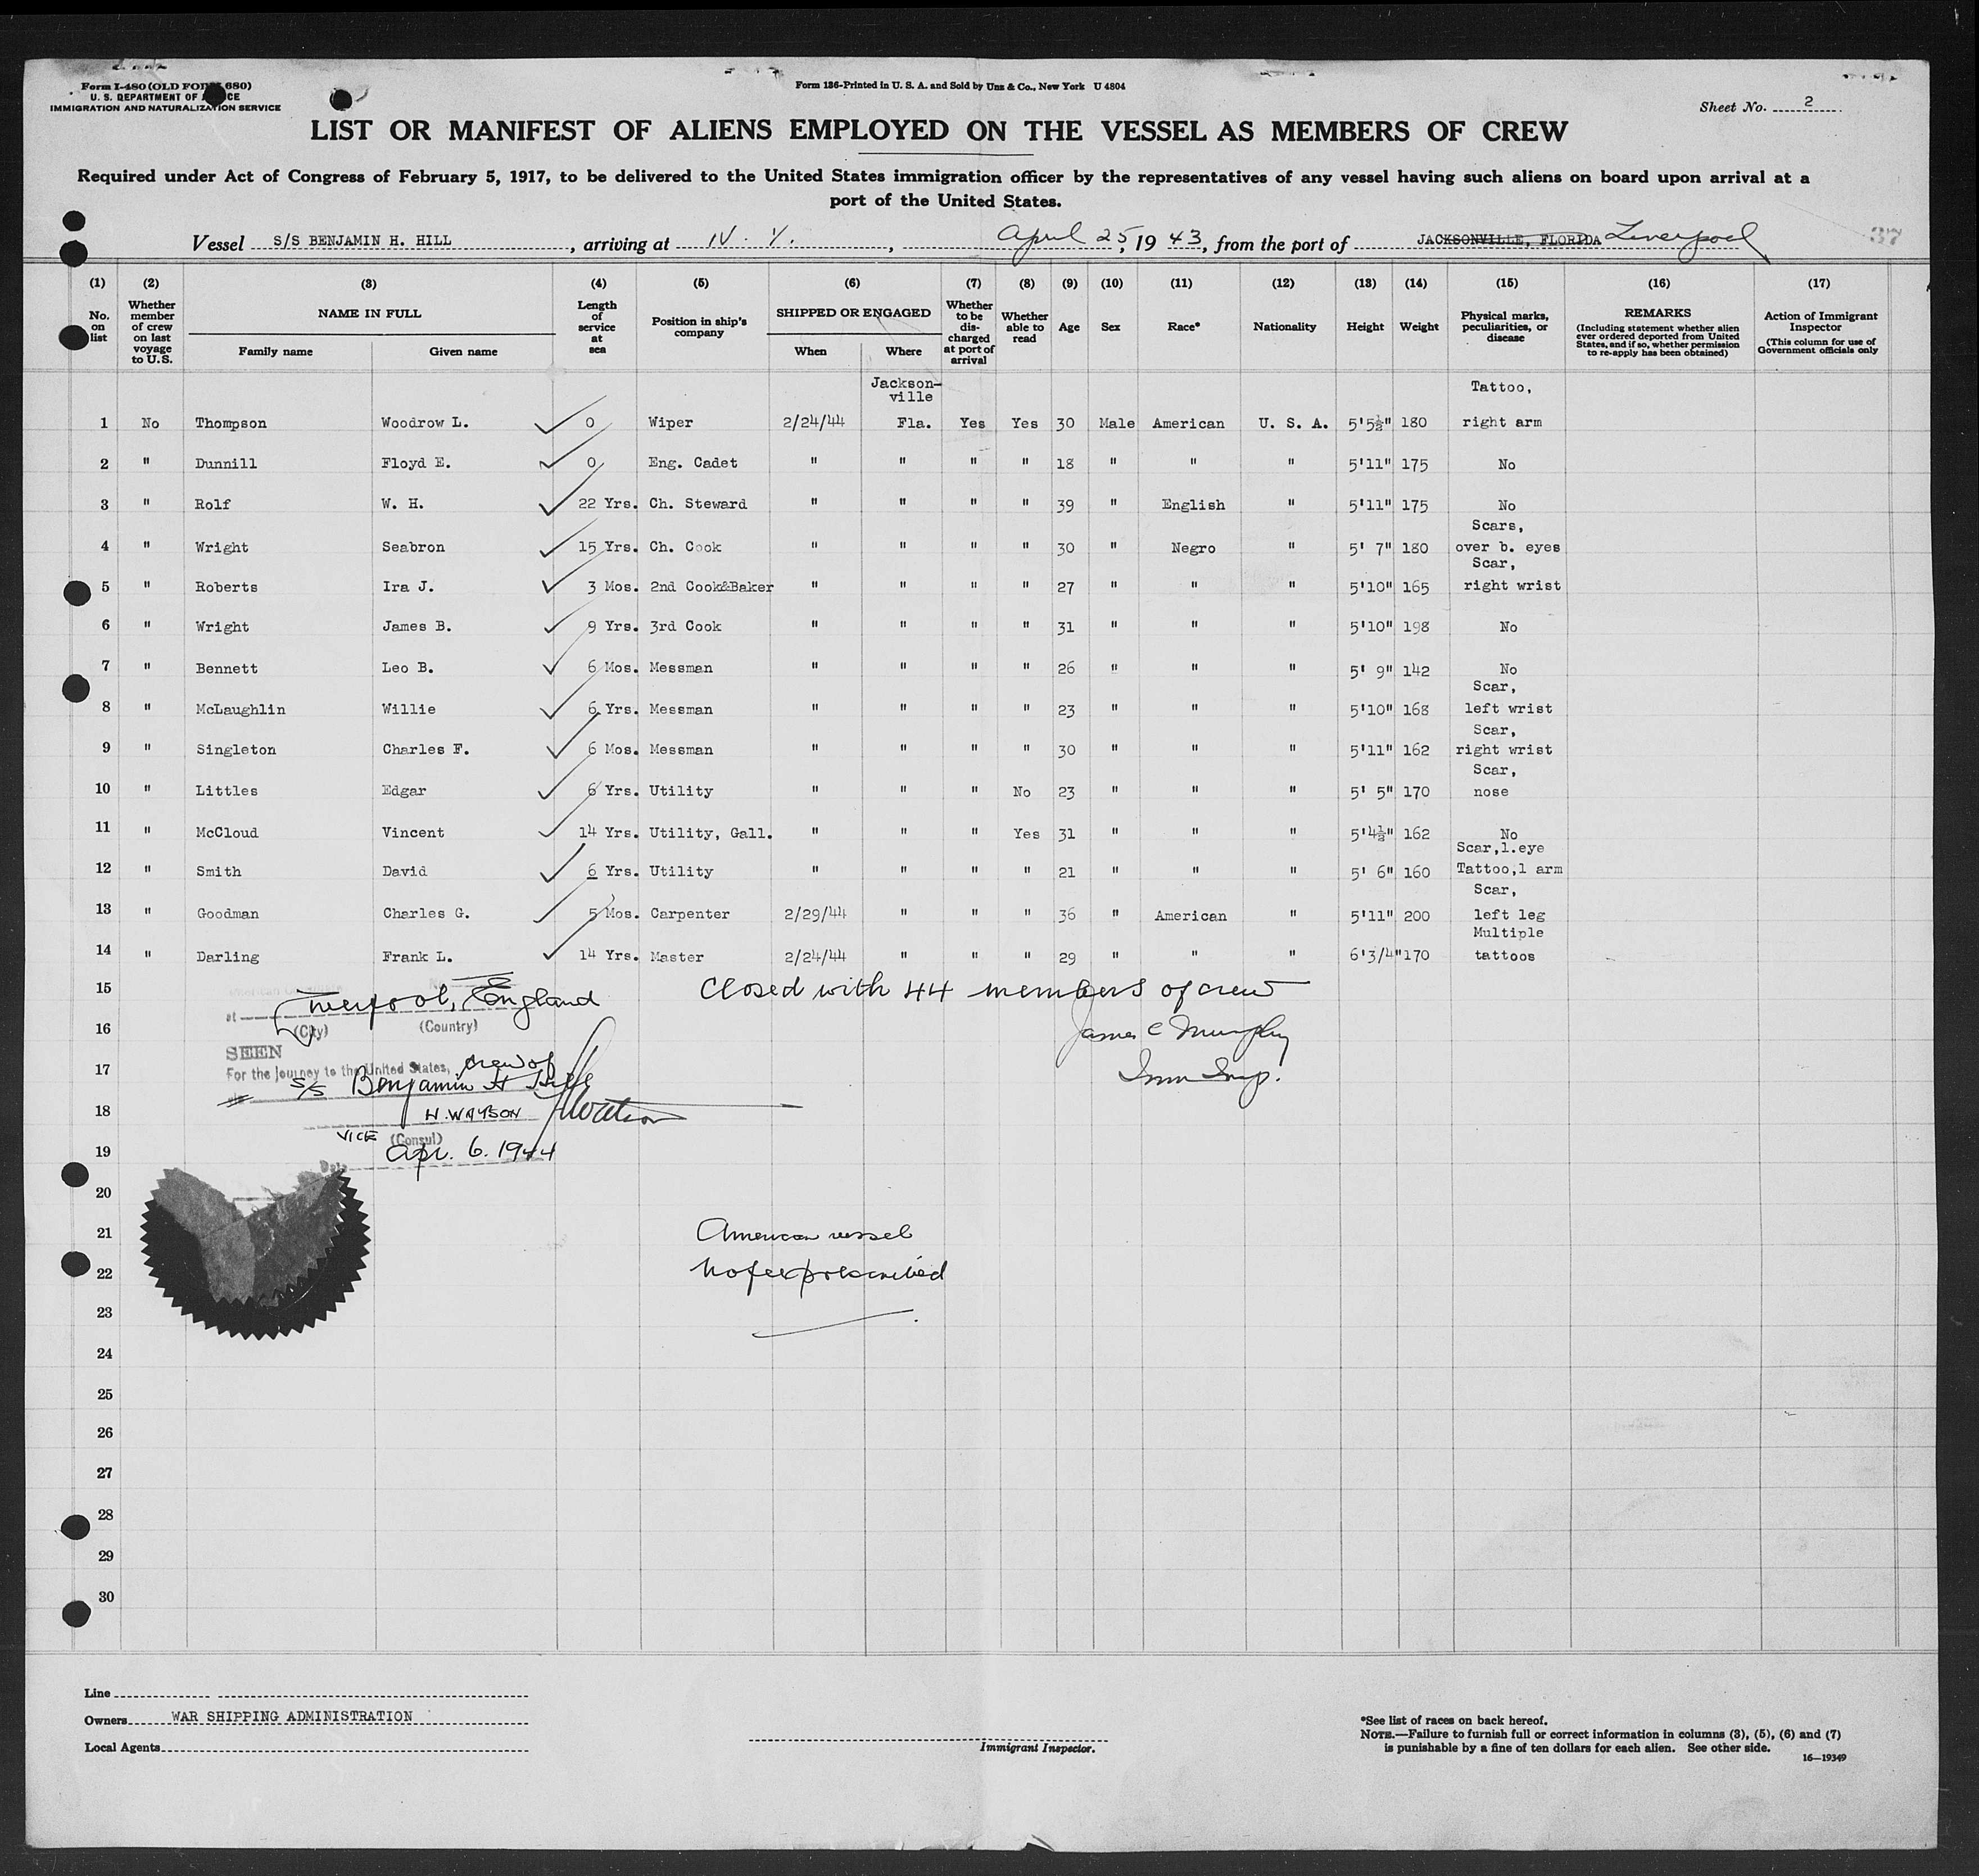 Form I-480 (OLD FORM 680)
U. S. DEPARTMENT OF JUSTICE
IMMIGRATION AND NATURALIZATION SERVICE
Form 186-Printed in U. S. A. and Sold by Unz & Co., New York U 4804
Sheet No. 2
LIST OR MANIFEST OF ALIENS EMPLOYED ON THE VESSEL AS MEMBERS OF CREW
Required under Act of Congress of February 5, 1917, to be delivered to the United States immigration officer by the representatives of any vessel having such aliens on board upon arrival at a
port of the United States.
Vessel S/S BENJAMIN H. HILL, arriving at N. Y., April 25, 1943, from the port of JACKSONVILLE, FLORIDA Liverpool
37
(1) No. on list
(2) Whether member of crew on last voyage to U.S.
(3) NAME IN FULL Family name Given name
(4) Length of service at sea
(5) Position in ship's company
(6) SHIPPED OR ENGAGED When Where
(7) Whether to be discharged at port of arrival
(8) Whether able to read
(9) Age
(10) Sex
(11) Race*
(12) Nationality
(13) Height
(14) Weight
(15) Physical marks, peculiarities, or disease
(16) REMARKS (Including statement whether alien ever ordered deported from United States, and if so, whether permission to re-apply has been obtained)
(17) Action of Immigrant Inspector (This column for use of Government officials only
1 No Thompson Woodrow L. 0 Wiper 2/24/44 Jackson-ville Fla. Yes Yes 30 Male American U. S. A. 5'5½" 180 Tattoo, right arm
2 " Dunnill Floyd E. 0 Eng. Cadet " " " " 18 " " " 5'11" 175 No
3 " Rolf W. H. 22 Yrs. Ch. Steward " " " " 39 " English " 5'11" 175 No
4 " Wright Seabron 15 Yrs. Ch. Cook " " " " 30 " Negro " 5' 7" 180 Scars, over b. eyes
5 " Roberts Ira J. 3 Mos. 2nd Cook&Baker " " " " 27 " " " 5'10" 165 Scar, right wrist
6 " Wright James B. 9 Yrs. 3rd Cook " " " " 31 " " " 5'10" 198 No
7 " Bennett Leo B. 6 Mos. Messman " " " " 26 " " " 5' 9" 142 No
8 " McLaughlin Willie 6 Yrs. Messman " " " " 23 " " " 5'10" 168 Scar, left wrist
9 " Singleton Charles F. 6 Mos. Messman " " " " 30 " " " 5'11" 162 Scar, right wrist
10 " Littles Edgar 6 Yrs. Utility " " " No 23 " " " 5' 5" 170 Scar, nose
11 " McCloud Vincent 14 Yrs. Utility, Gall. " " " Yes 31 " " " 5'4½" 162 No
12 " Smith David 6 Yrs. Utility " " " " 21 " " " 5' 6" 160 Scar,l.eye Tattoo,l arm
13 " Goodman Charles G. 5 Mos. Carpenter 2/29/44 " " " 36 " American " 5'11" 200 Scar, left leg
14 " Darling Frank L. 14 Yrs. Master 2/24/44 " " " 29 " " " 6'3/4" 170 Multiple tattoos
15
Closed with 44 members of crew
at Liverpool, England
(City) (Country)
16
James C Murphy
SEEN
17
For the journey to the United States, crew of
Imm Insp.
S/S Benjamin H Hill
18
H. WATSON HWatson
VICE (Consul)
19
Apr. 6. 1944
Date
20
21
American vessel
22
No fee prescribed
23
24
25
26
27
28
29
30
Line
Owners WAR SHIPPING ADMINISTRATION
Local Agents
Immigrant Inspector.
*See list of races on back hereof.
NOTE.—Failure to furnish full or correct information in columns (3), (5), (6) and (7)
is punishable by a fine of ten dollars for each alien. See other side.
16—19349